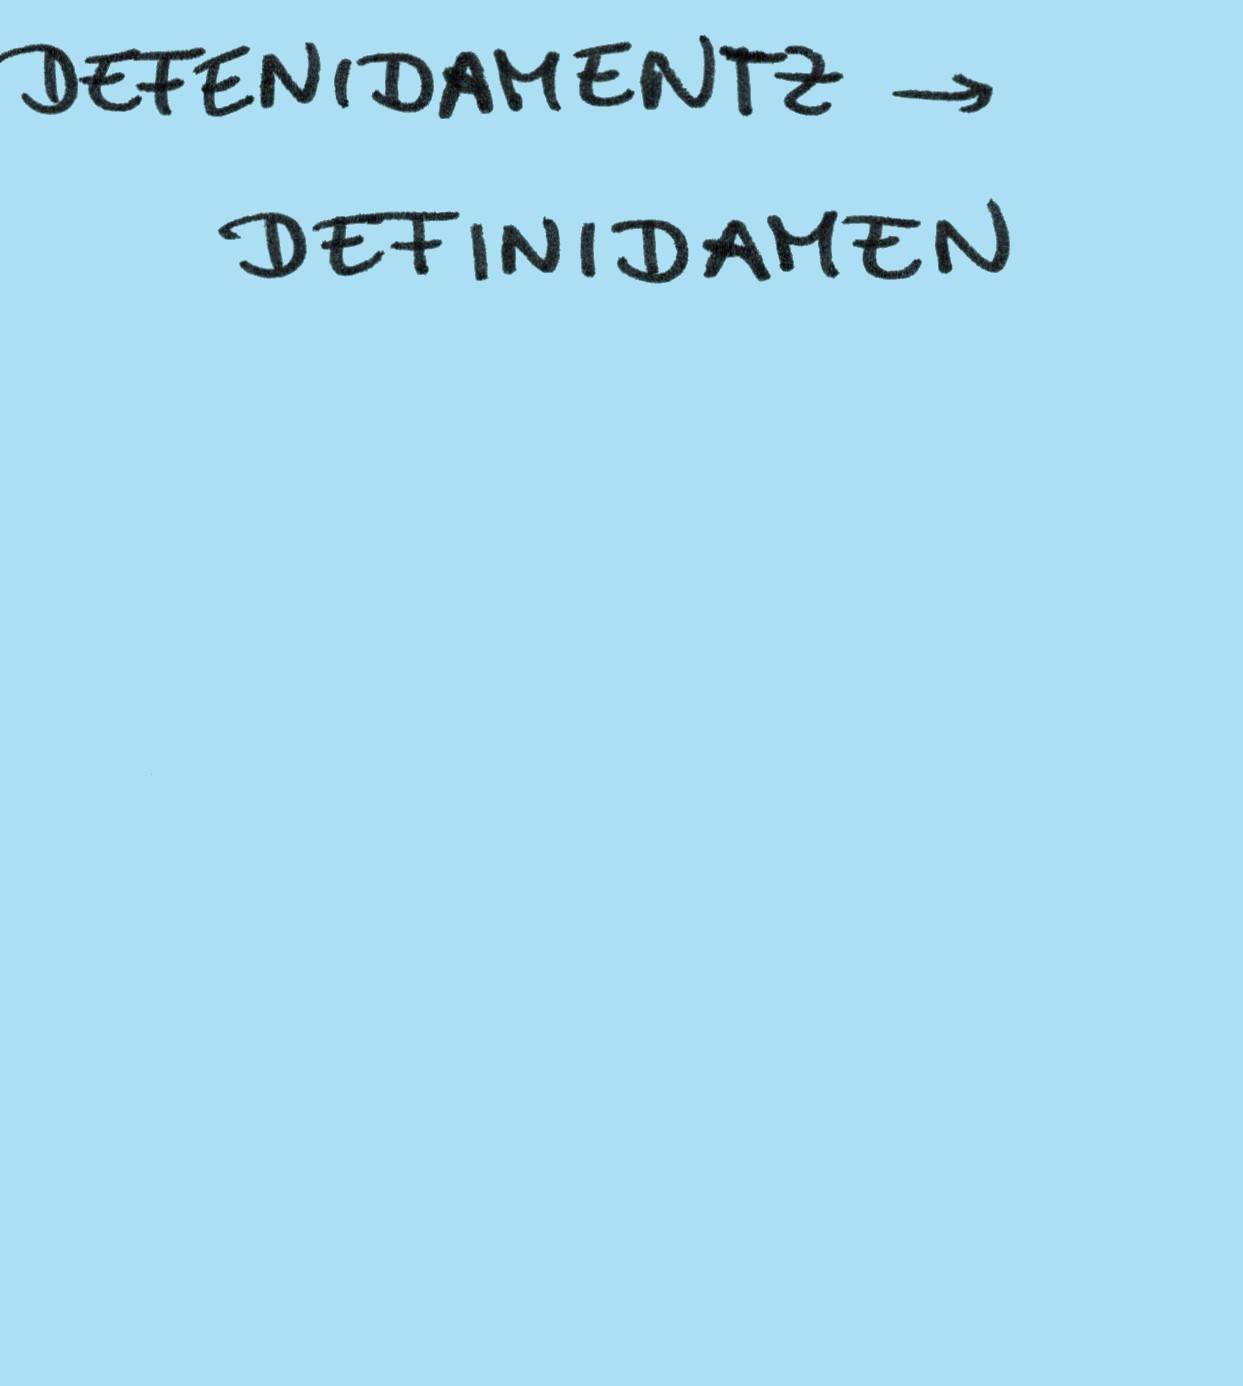 DEFENIDAMENTZ →
DEFINIDAMEN